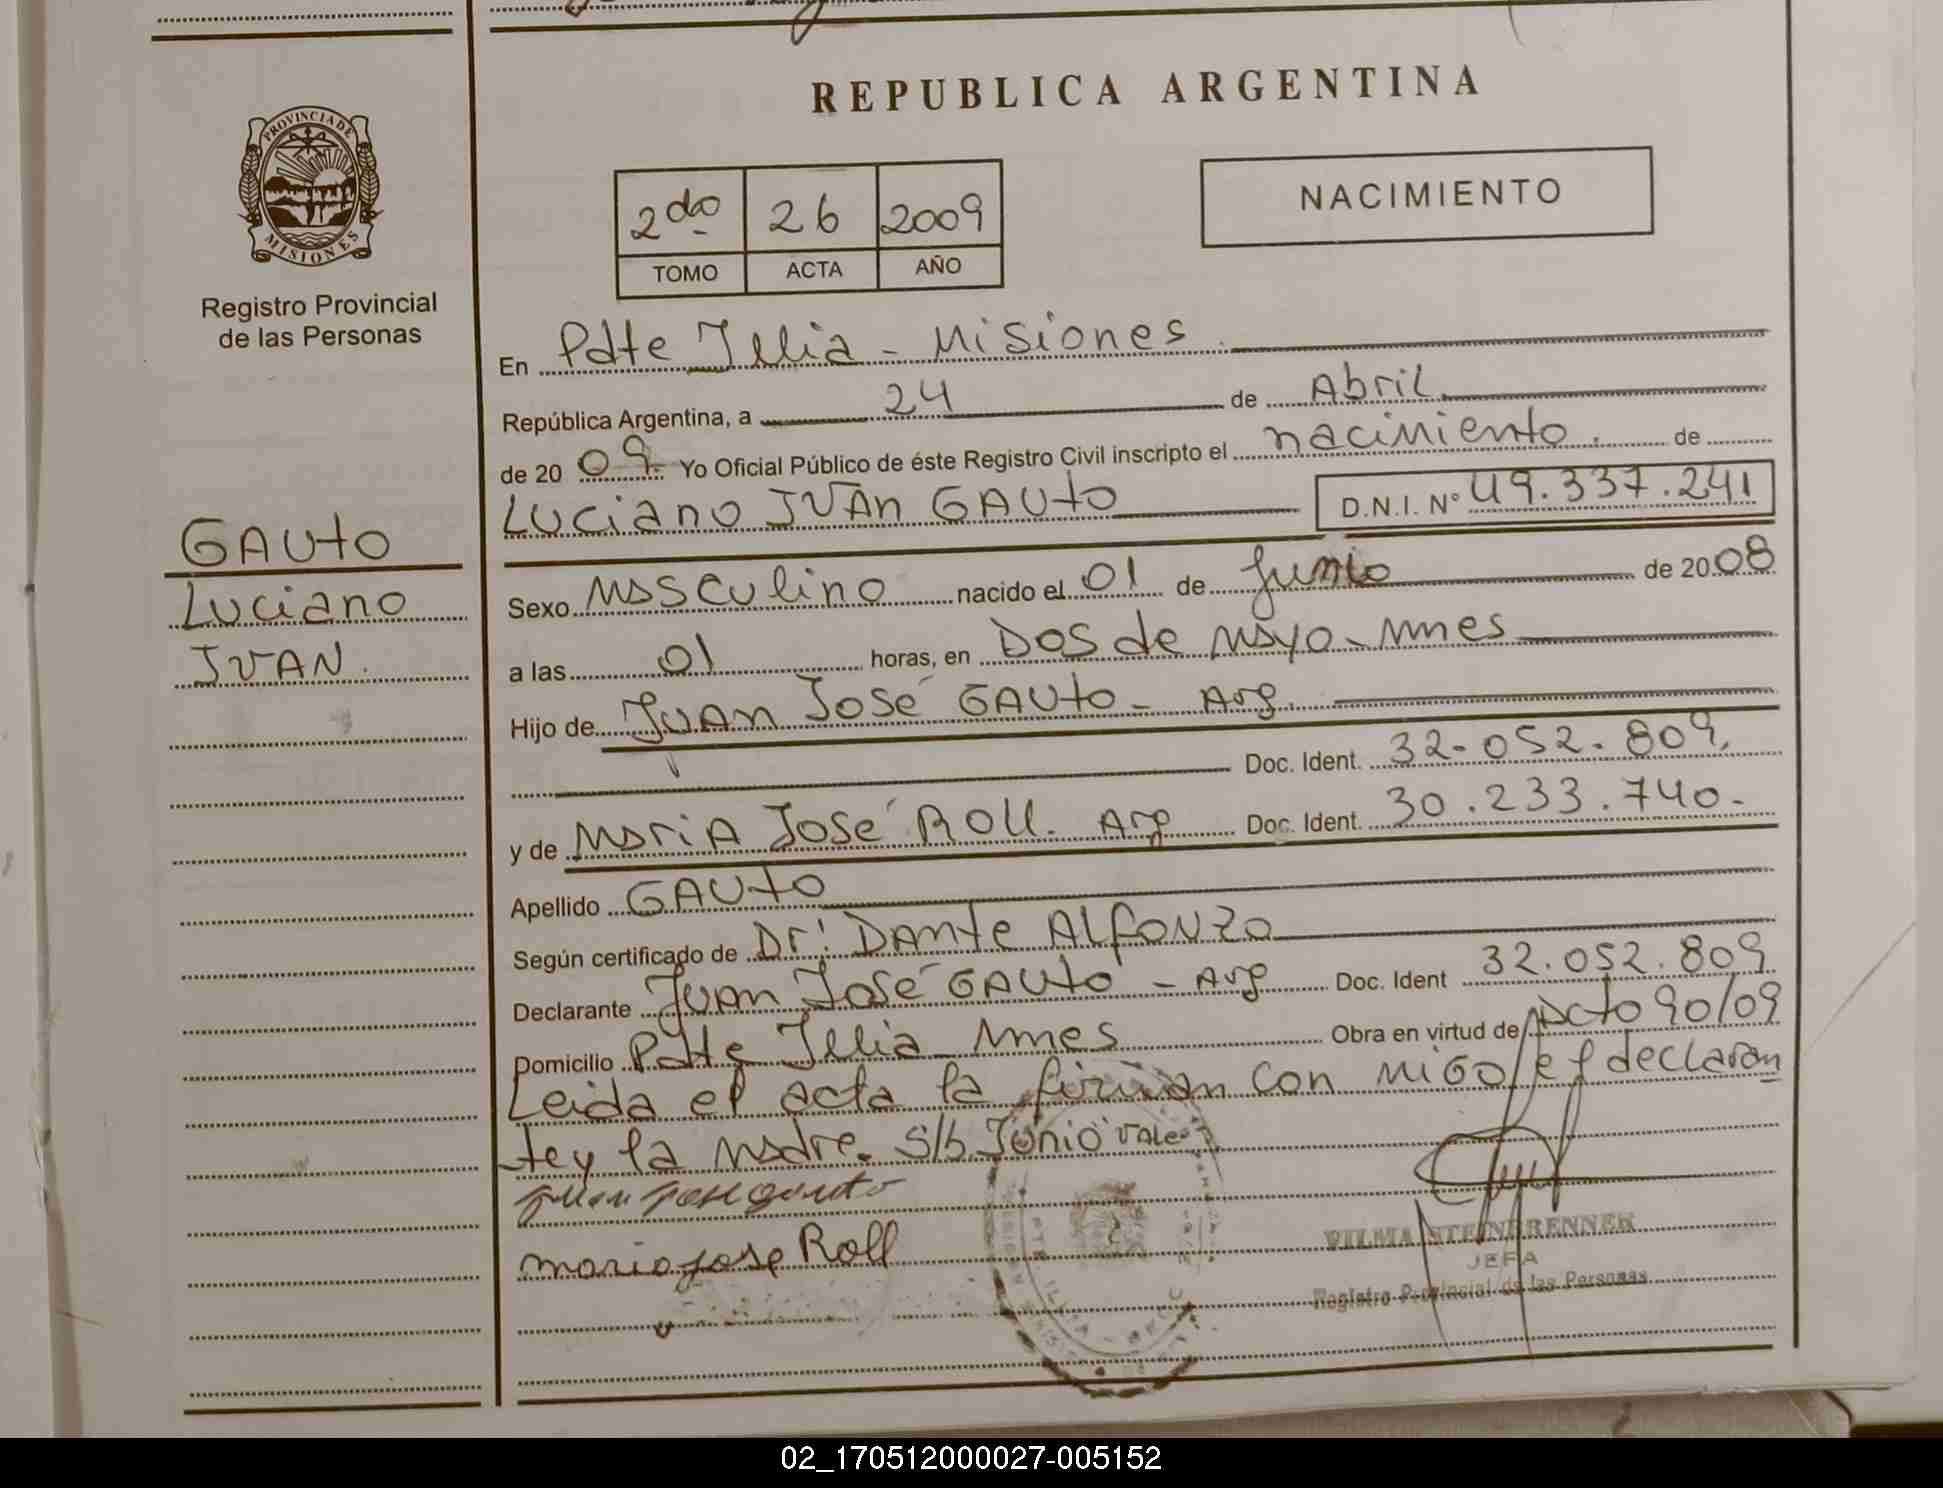 REPUBLICA ARGENTINA
PROVINCIA DE MISIONES
Registro Provincial
de las Personas
2do 26 2009
TOMO ACTA AÑO
NACIMIENTO
En Pdte Illia - Misiones
República Argentina, a 24 de Abril
de 2009. Yo Oficial Público de éste Registro Civil inscripto el nacimiento. de
Luciano IVAN GAUto D.N.I. Nº 49.337.241
GAUto
Luciano
IVAN.
Sexo Masculino nacido el 01 de Junio de 2008
a las 01 horas, en Dos de Mayo - Mnes
Hijo de Juan José GAUto - Arg.
Doc. Ident. 32.052.809.
y de MariA José Roll. Arg Doc. Ident. 30.233.740.-
Apellido GAUto
Según certificado de Dr: DAnte ALfonzo
Declarante Juan José GAUto - Arg Doc. Ident 32.052.809
Domicilio Pdte Illia - Mnes Obra en virtud de Dcto 90/09
Leida el acta la firman con migo el declaran
te y la madre. S/b. Junio Vale
Juan Jose Gauto
maria jose Roll
VILMA STEINBRENNER
JEFA
Registro Provincial de las Personas
02_170512000027-005152